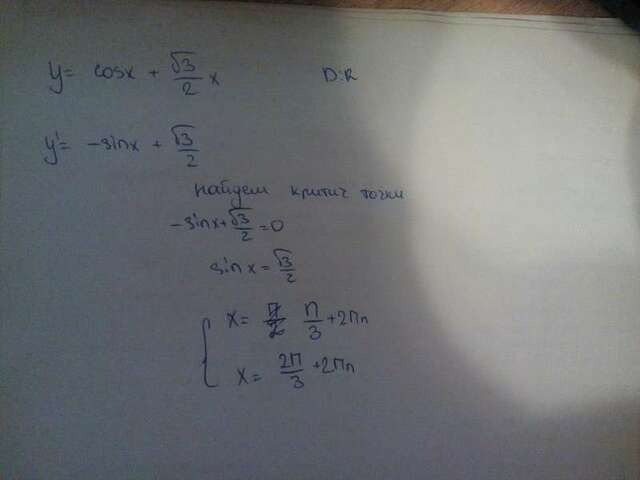 y = cosx + √3/2 x D:R
y' = -sinx + √3/2
найдем критич точки
-sinx + √3/2 = 0
sin x = √3/2
x = π/3 + 2πn
x = 2π/3 + 2πn